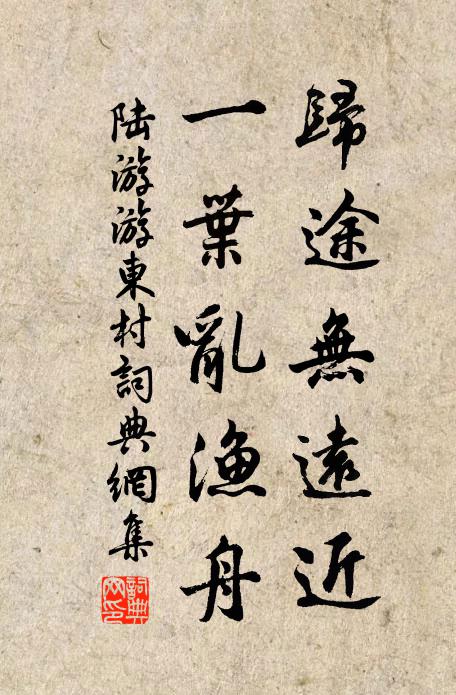 歸途無遠近
一葉亂漁舟
陸游游東村詞典網集
詞典
网印